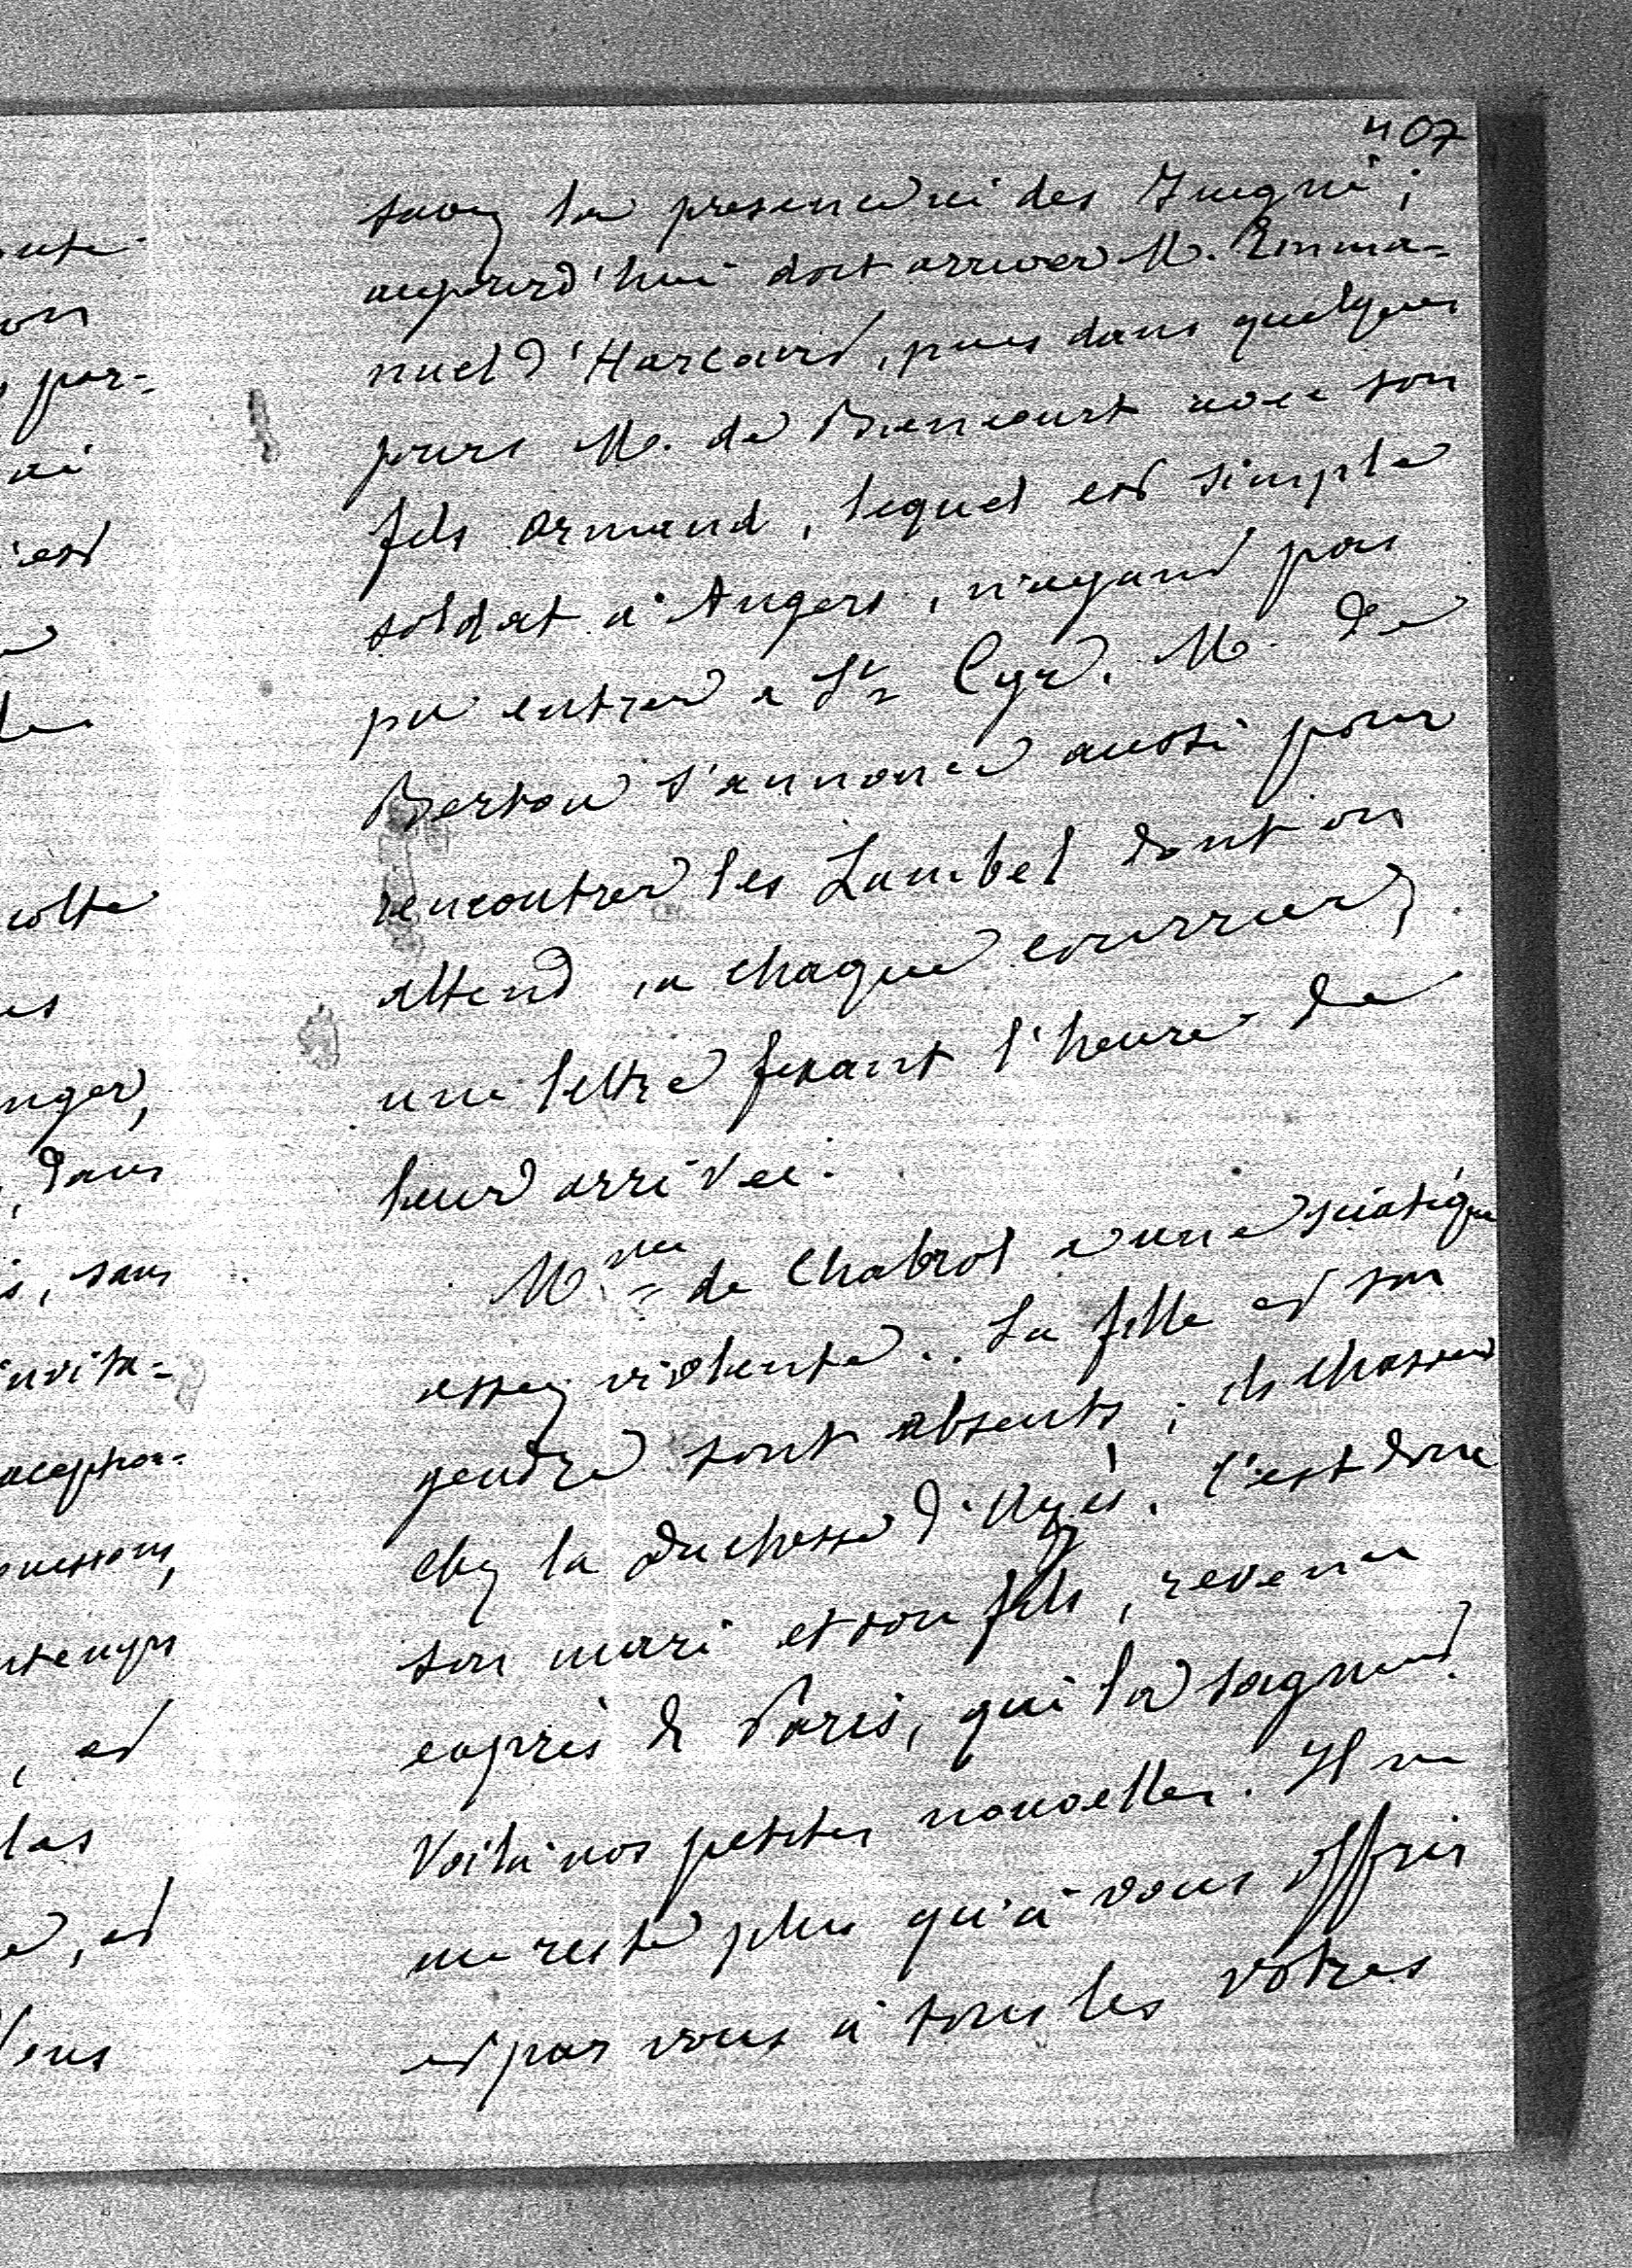 407
savez la presence ici des Juigné ;
aujourd'hui doit arriver M. Emma-
nuel d'Harcourt, puis dans quelques
jours M. de Biencourt avec son
fils Armand, lequel est simple
soldat à Angers, n'ayant pas
pu entrer a St Cyr. M. de
Bertou s'annonce aussi pour
rencontrer les Lambel dont on
attend, a chaque courrier,
une lettre fixant l'heure de
leur arrivée.
Mme de Chabrol a une sciatique
assez violente. Sa fille et son
gendre sont absents ; ils chassent
chez la duchesse d'Uzès. C'est donc
son mari et son fils, revenu
exprès de Paris, qui la soignent.
Voilà nos petites nouvelles. Il ne
me reste plus qu'à vous offrir
et par vous à tous les vôtres
on
, par-
ai
'est
colte
es
nger,
, dans
s, sans
invita-
ntemps
, et
las
e, et